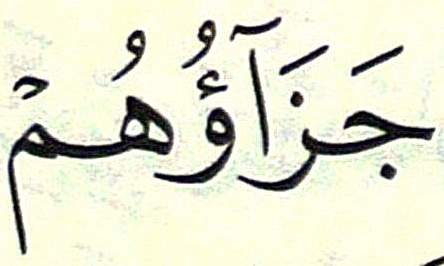 جَزَآؤُهُمْ